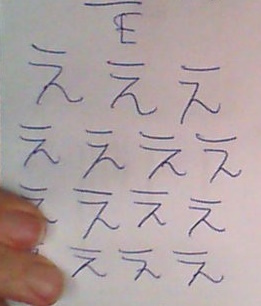 E
え え え
え え え え
え え え え
え え え